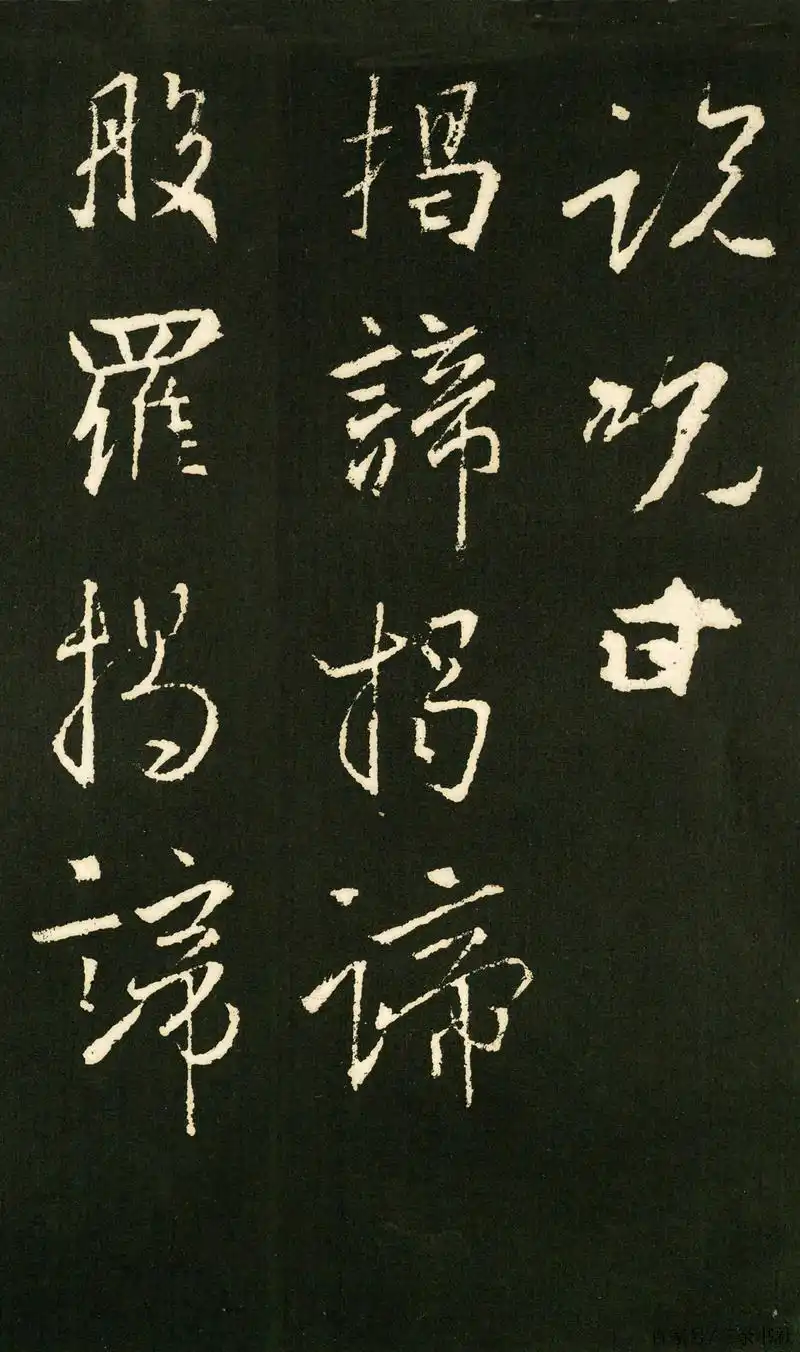 説呪曰
揭諦揭諦
般羅揭諦